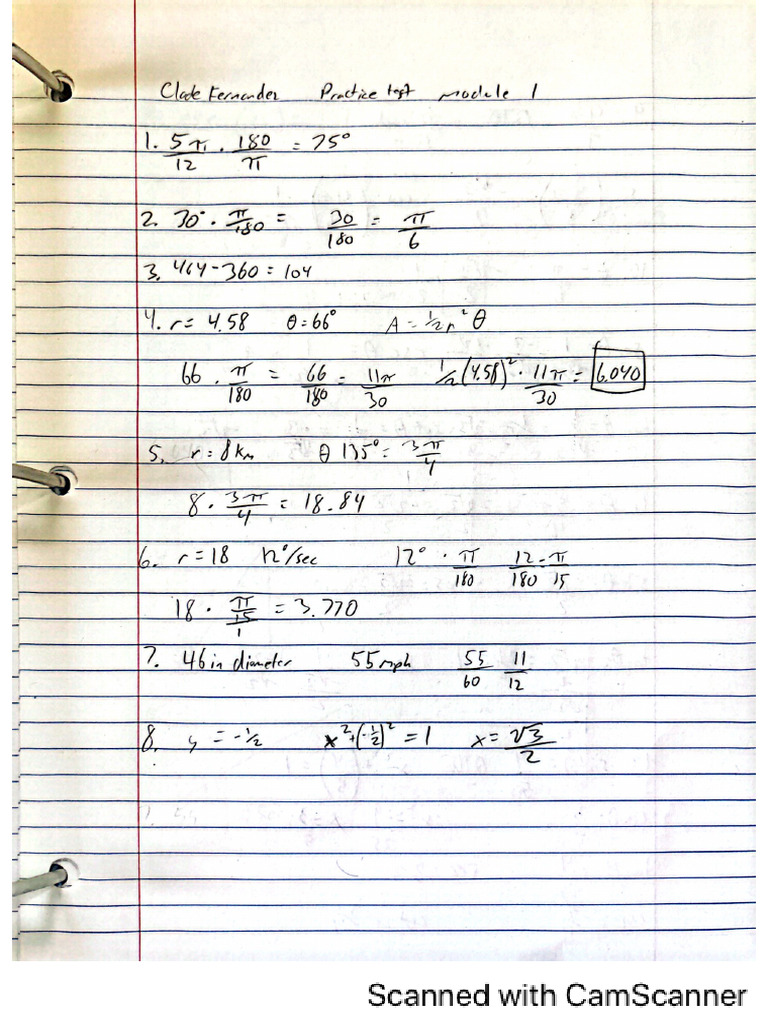 Clade Fernander Practice test module 1
1. 5π/12 · 180/π = 75°
2. 30° · π/180 = 30/180 = π/6
3. 464-360 = 104
4. r = 4.58 θ = 66° A = 1/2 r² θ
66 · π/180 = 66/180 = 11π/30 1/2 (4.58)² · 11π/30 = 6.040
5. r = 8km θ 135° = 3π/4
8 · 3π/4 = 18.84
6. r = 18 12°/sec 12° · π/180 12/180 - π/15
18 · π/15/1 = 3.770
7. 46 in diameter 55 mph 55/60 11/12
8. y = -1/2 x² + (-1/2)² = 1 x = √3/2
Scanned with CamScanner